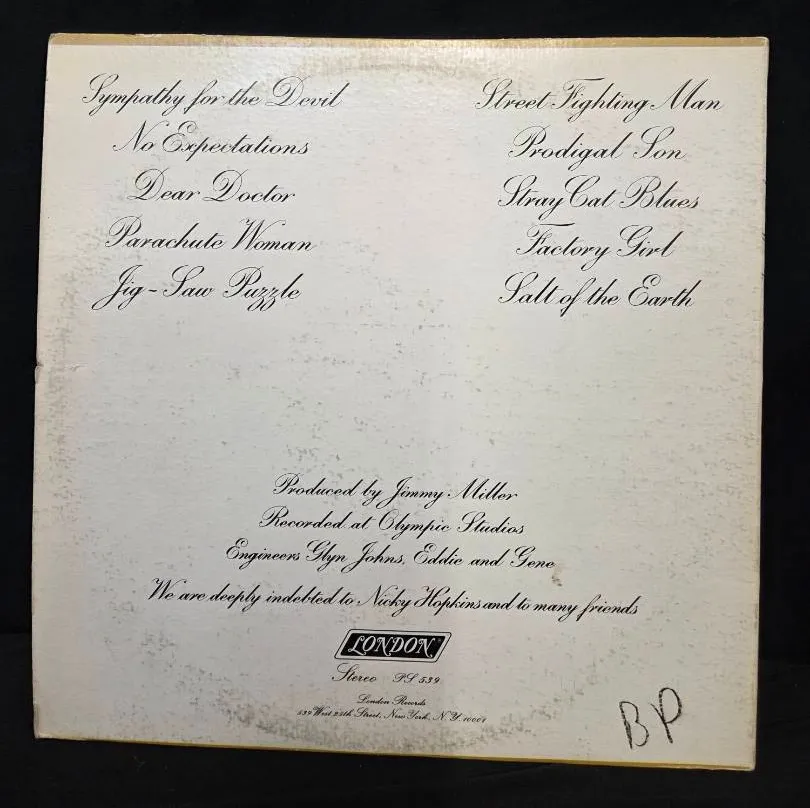 Sympathy for the Devil
No Expectations
Dear Doctor
Parachute Woman
Jig-Saw Puzzle
Street Fighting Man
Prodigal Son
Stray Cat Blues
Factory Girl
Salt of the Earth
Produced by Jimmy Miller
Recorded at Olympic Studios
Engineers Glyn Johns, Eddie and Gene
We are deeply indebted to Nicky Hopkins and to many friends
LONDON
Stereo PS 539
London Records
539 West 25th Street, New York, N.Y. 10001
BP